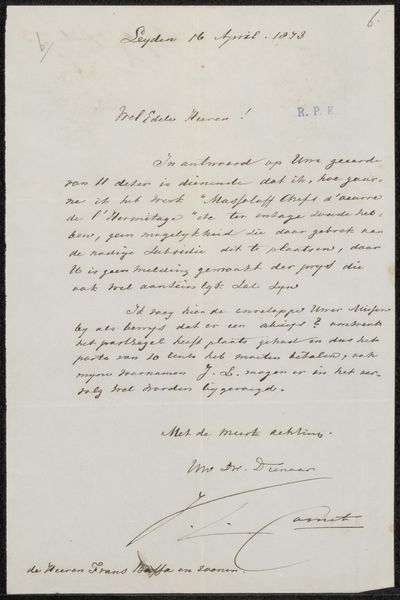 6.
Leyden 16 April. 1873
Wel Edele Heeren!
R. P. K
In antwoord op Uwe geeerde
van 11 dezer is dienende dat ik, hoe gaar-
ne ik het werk "Massaloff Chefs d'oeuvre
de l'Hermitage" ter inzage zoude heb-
ben, geen mogelykheid zie daar gebrek aan
de nodige subsidie dit te plaatsen, daar
is geen melding gemaakt der prys die
ook wel aanzienlyk zal zyn
Ik voeg hier de enveloppe Uwer Missive
by als bewys dat er een abuys omtrent
het postzegel heeft plaats gehad en dus het
porto van 10 cents heb moeten betalen, ook
myne voornamen J. L. mogen er in het ver-
volg wel worden bygevoegd.
Met de meeste achting.
Uw Dw. Dienaar
J. L. Cornet
de Heeren Frans Buffa en zoonen.